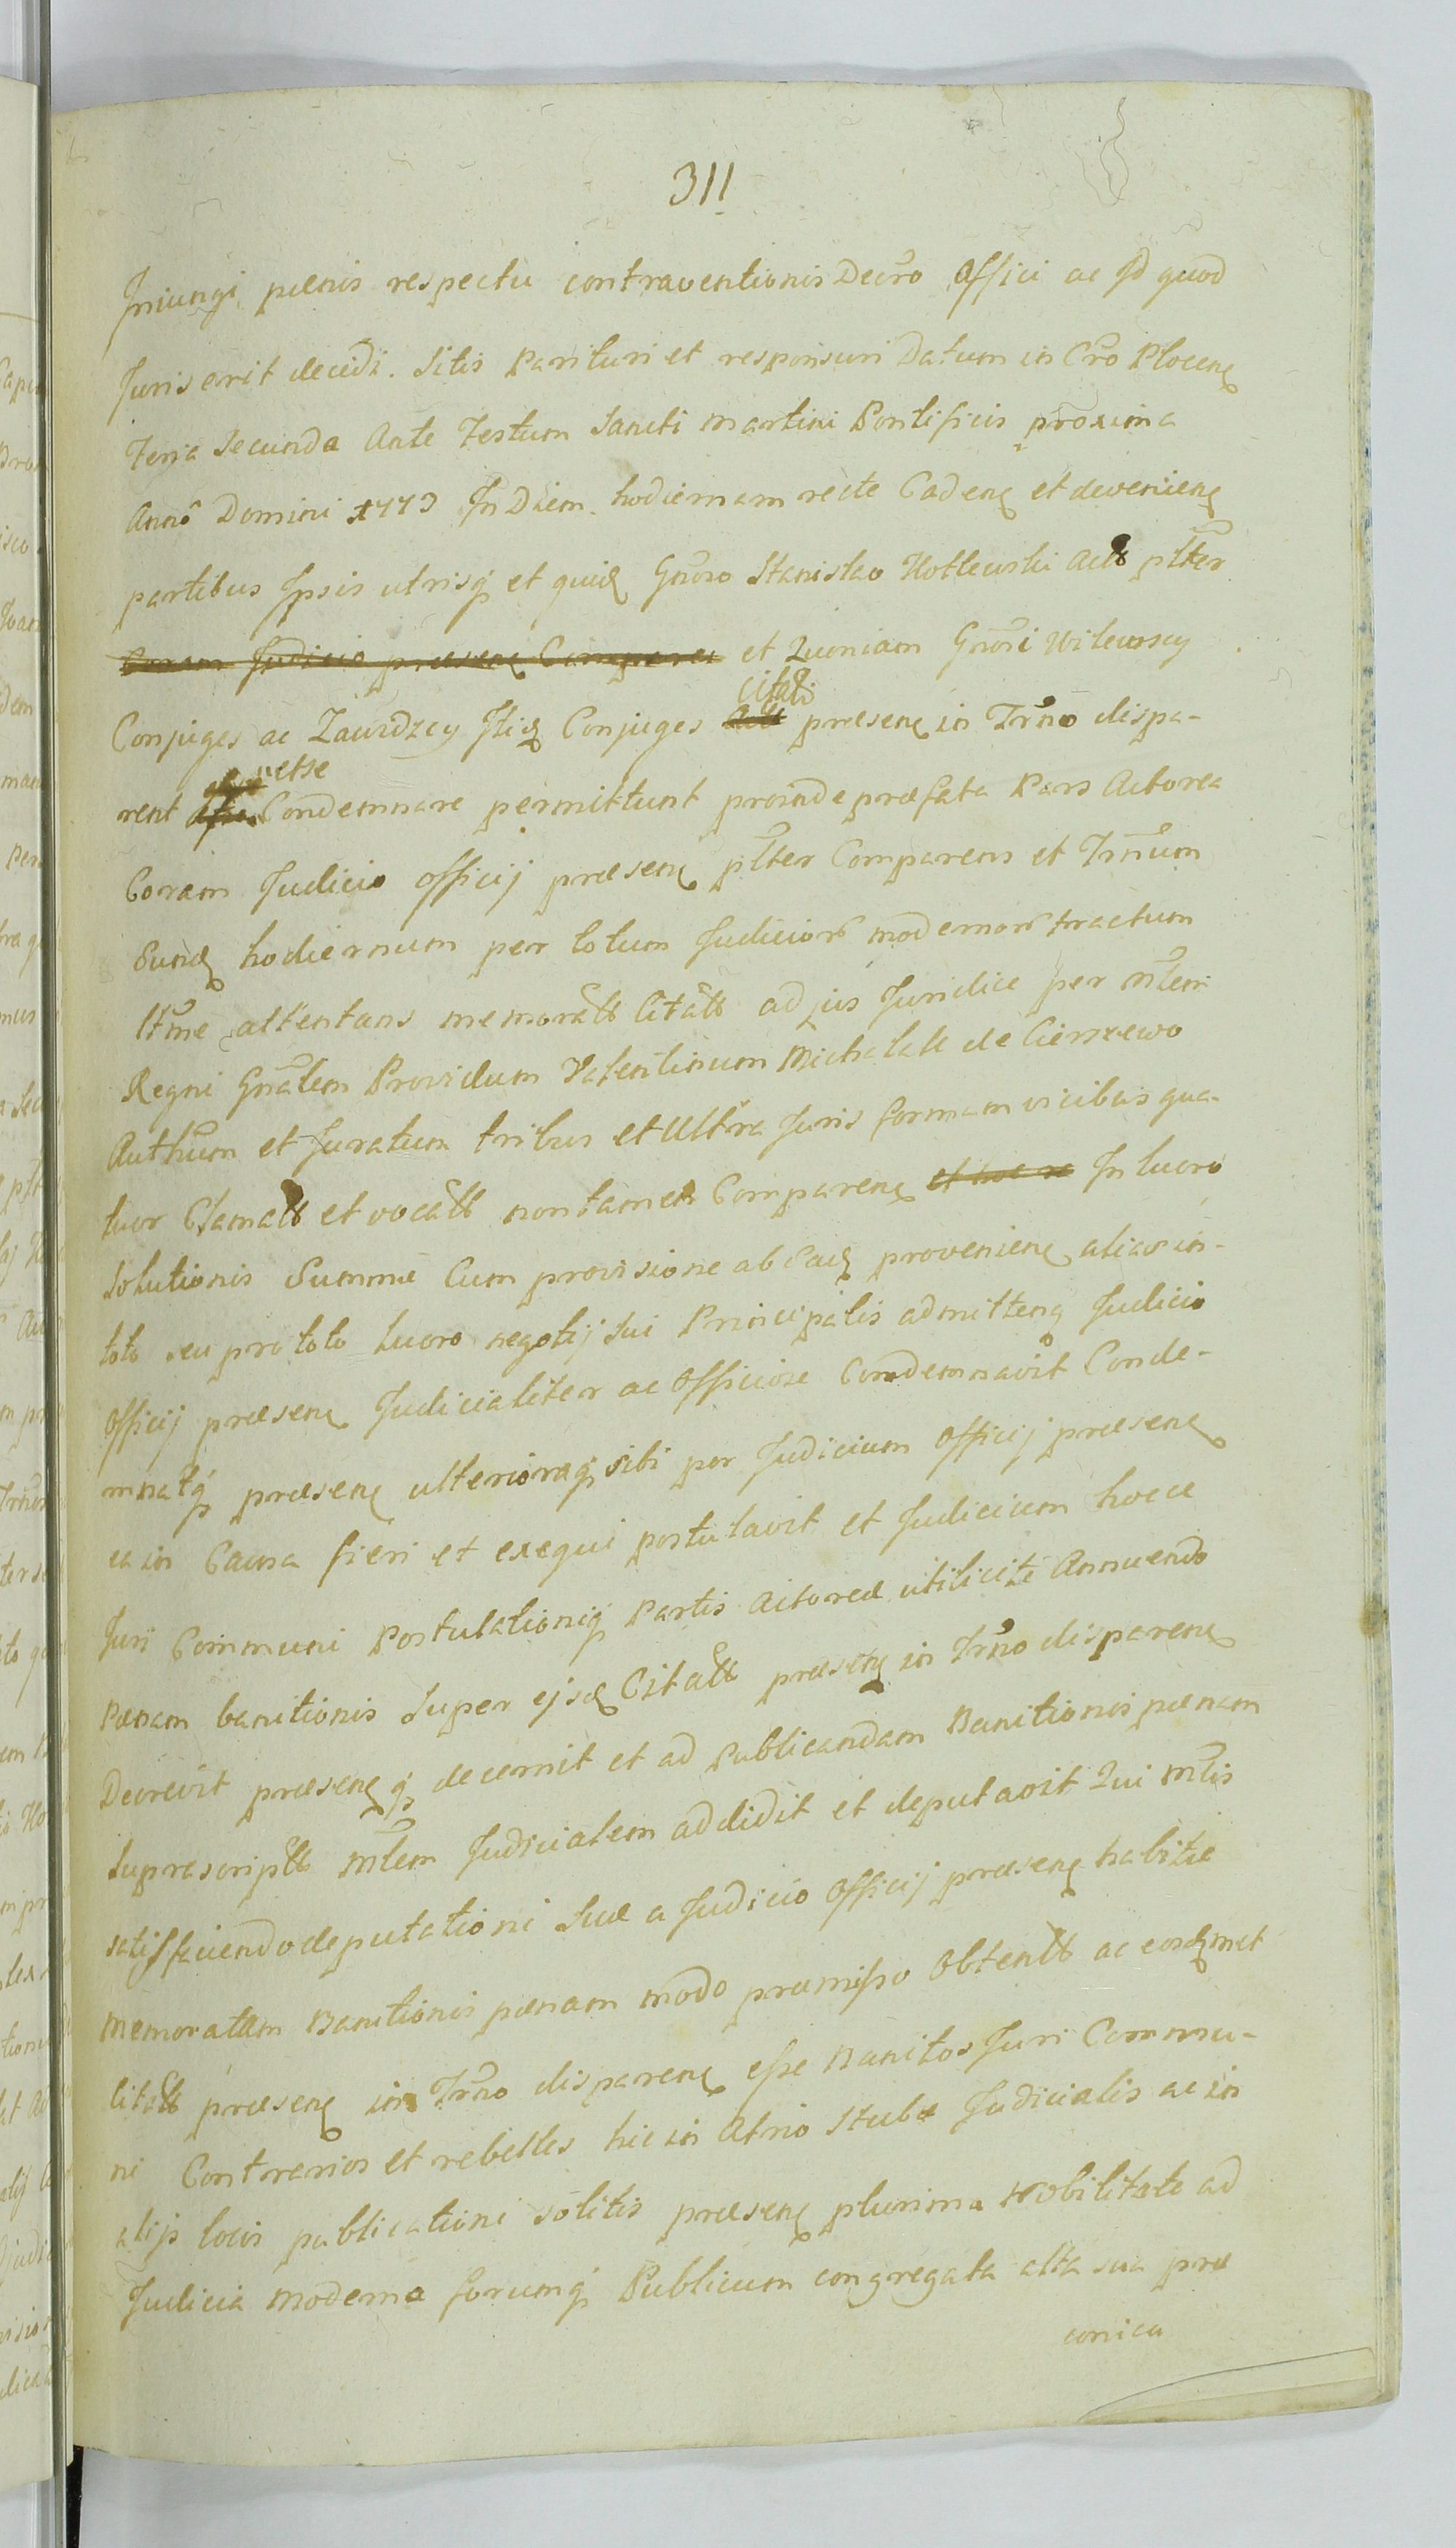 311
Injungi pœnis respectu contraventionis Decro Affici ac Id quod
Juris erit decidi. Sitis Parituri et responsuri Datum in Cro Plocen
Feria Secunda Ante Festum Sancti Martini Pontificis proxima
Anno Domini 1773 In Diem hodiernam recte Caden et devenien
partibus Ipsis utrisq et quid Gnoso Stanislao Kotlewski Act plter
Coram Judicio præsen Comparen et Quoniam Gnosi Wilewscy
Conjuges ac Zawidzcy Itid Conjuges Citati præsen in Trno dispa-
rent se Condemnare permittunt proinde præfata Pars Actorea
Coram Judicio Officij præsen plter Comparens et Trnum
Sund hodiernum per totum Judicior modernor tractum
ltme attentans memoratt Citatt ad jus Juridice per Mtem
Regni Gnalem Providum Valentinum Michalak de Cierszewo
Authum et Juratum tribus et Ultra Juris formam vicibus qua-
tuor Clamatt et vocatt non tamen Comparen In lucro
Solutionis Summæ Cum provisione ab Ead provenien alias in
toto seu pro toto lucro negotij Sui Principalis admitten Judicio
Officij præsen Judicialiter ac Officiose Condemnavit Conde-
mnatq præsen ulterioraq sibi per Judicium Officij præsen
ea in Causa fieri et exequi postulavit et Judicium hocce
Juri Communi Postulationiq Partis Actoreæ utilicite Annuendo
Pœnam banitionis Super ejsd Citatt præsen in Trno disparen
Decrevit præsenq decernit et ad Publicandam Banitionis pœnam
Suprascriptt Mtem Judicialem addidit et deputavit Qui Mtis
satisfaciendo deputationi Suæ a Judicio Officij præsen habitæ
memoratam Banitionis pœnam modo præmisso Obtentt ac eosdmet
Citatt præsen in Trno disparen esse Banitos Juri Commu-
ni Contrarios et rebelles hic in Atrio Stubæ Judicialis ac in
alijs locis publicationi solitis præsen plurima Nobilitate ad
Judicia moderna forumq Publicum congregata alta sua præ
conica